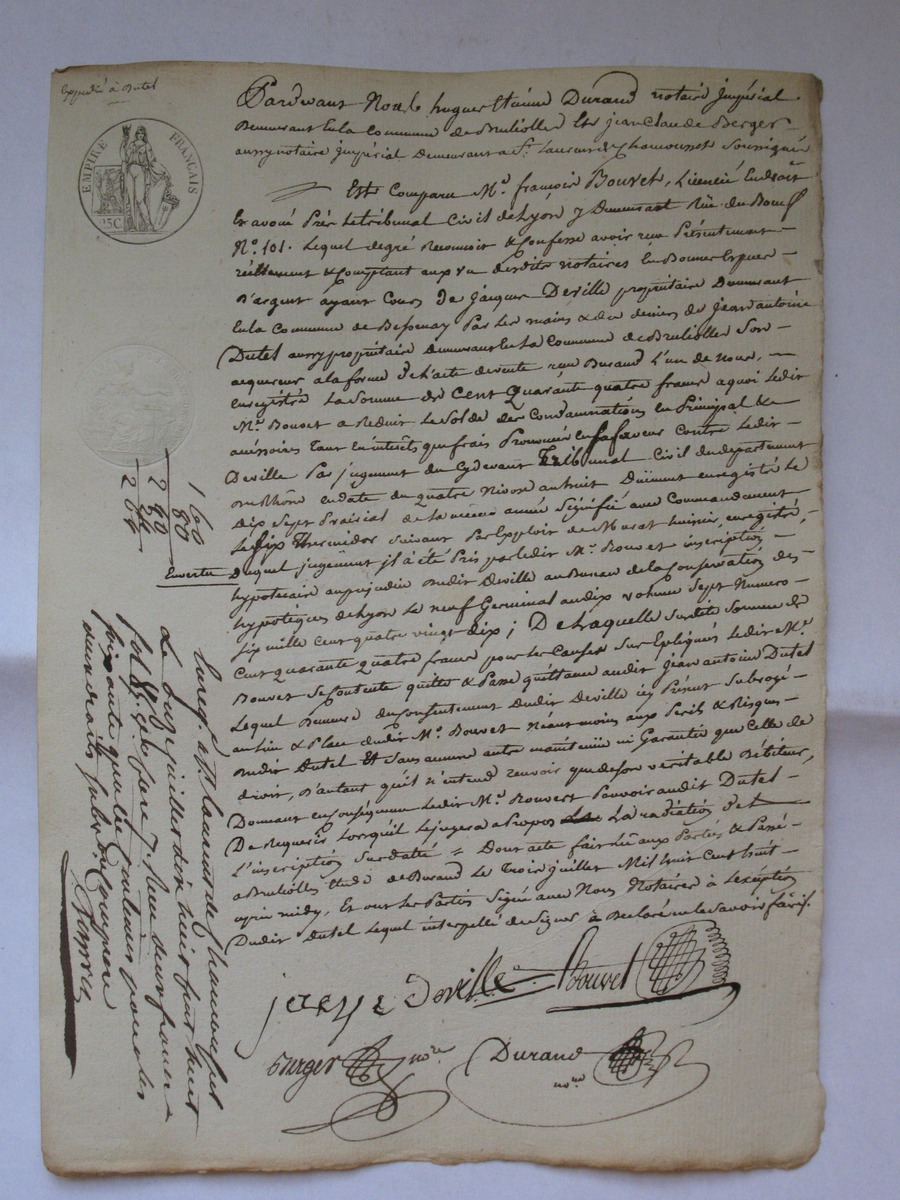 Expedié à Dutel
EMPIRE FRANÇAIS
25C
Pardevant Nous hugues Etienne Durand notaire Impérial
Demeurant En la Commune de Brullioller Et jean Claude Berger
aussy notaire impérial Demeurant a St. Laurent de Chamousset Soussignés
Est Comparu Mr. françois Bouvet, Licencié En droit
Et avoué Près Le tribunal Civil de Lyon y Demeurant Rüe du Boeuf
No. 101. Lequel de gré Reconnoit & Confesse avoir reçu Présentement
réellement & Comptant aux vu desdits notaires En Bonnes Espèces
D'argent ayant Cours De jacques Deville propriétaire Demeurant
En la Commune de Bessenay Par les mains & des deniers de jean antoine
Dutel aussy propriétaire Demeurant En La Commune de Brullioller Son
acquereur a la forme De l'acte de vente reçu Durand L'un de nous,
enregistré La Somme de Cent Quarante quatre francs a quoi Ledit
Mr. Bouvet a Reduit Le Solde des Condamnations en Principal &
accessoires Tant en interêts que frais Prononcés en Sa faveur Contre Ledit
Deville Par jugement du Cydevant Tribunal Civil du departement
du Rhône en date du quatre Nivose an huit Düement enregistré Le
dix Sept Prairial de la même année Signifié avec Commandement
Le Six Thermidor Suivant Par Exploit de Murat huissier, enregistré,
En vertu Duquel jugement il a été Pris par ledit Mr. Bouvet inscription
hypotécaire au prejudice dudit Deville au Bureau de la Conservation des
hypotèques de Lyon Le neuf Germinal an dix volume Sept Numero
Six mille Cent quatre vingt dix; De Laquelle Susdite Somme de
Cent quarante quatre francs pour les Causes Sus Expliqués Ledit Mr.
Bouvet Se Contente quitte & Passe quittance audit jean antoine Dutel
Lequel Demeure du Consentement dudit Deville icy Présent Subrogé
au lieu & Place dudit Mr. Bouvet Néantmoins aux Perils & Risques
dudit Dutel Et Sans aucune autre maintenüe ni Garantie que Celle de
droit, D'autant qu'il n'entend recevoir que de Son veritable Débiteur,
Donnant en Conséquence Ledit Mr. Bouvet Pouvoir audit Dutel
De Requerir Lorsqu'il Le jugera a Propos La radiation de
L'inscription Susdatté = Dont acte fait Lû aux Parties & Passé
a Brullioller Etude de Durand Le Trois juillet Mil huit Cent huit
après midy, Et ont les Parties Signé avec Nous Notaires à L'exception
Dudit Dutel Lequel interpellé de Signer à Déclaré ne le Savoir faire.
jacque Deville Bouvet
Berger nore Durand
nore
1 60
80
2 40
24
2 64
Enreg. a St. Laurent de Chamousset
Le onze juillet dix huit cent huit
fol. 85 Reçu deux francs
soixante quatre Centimes pour les
deux droits subv. Comprise